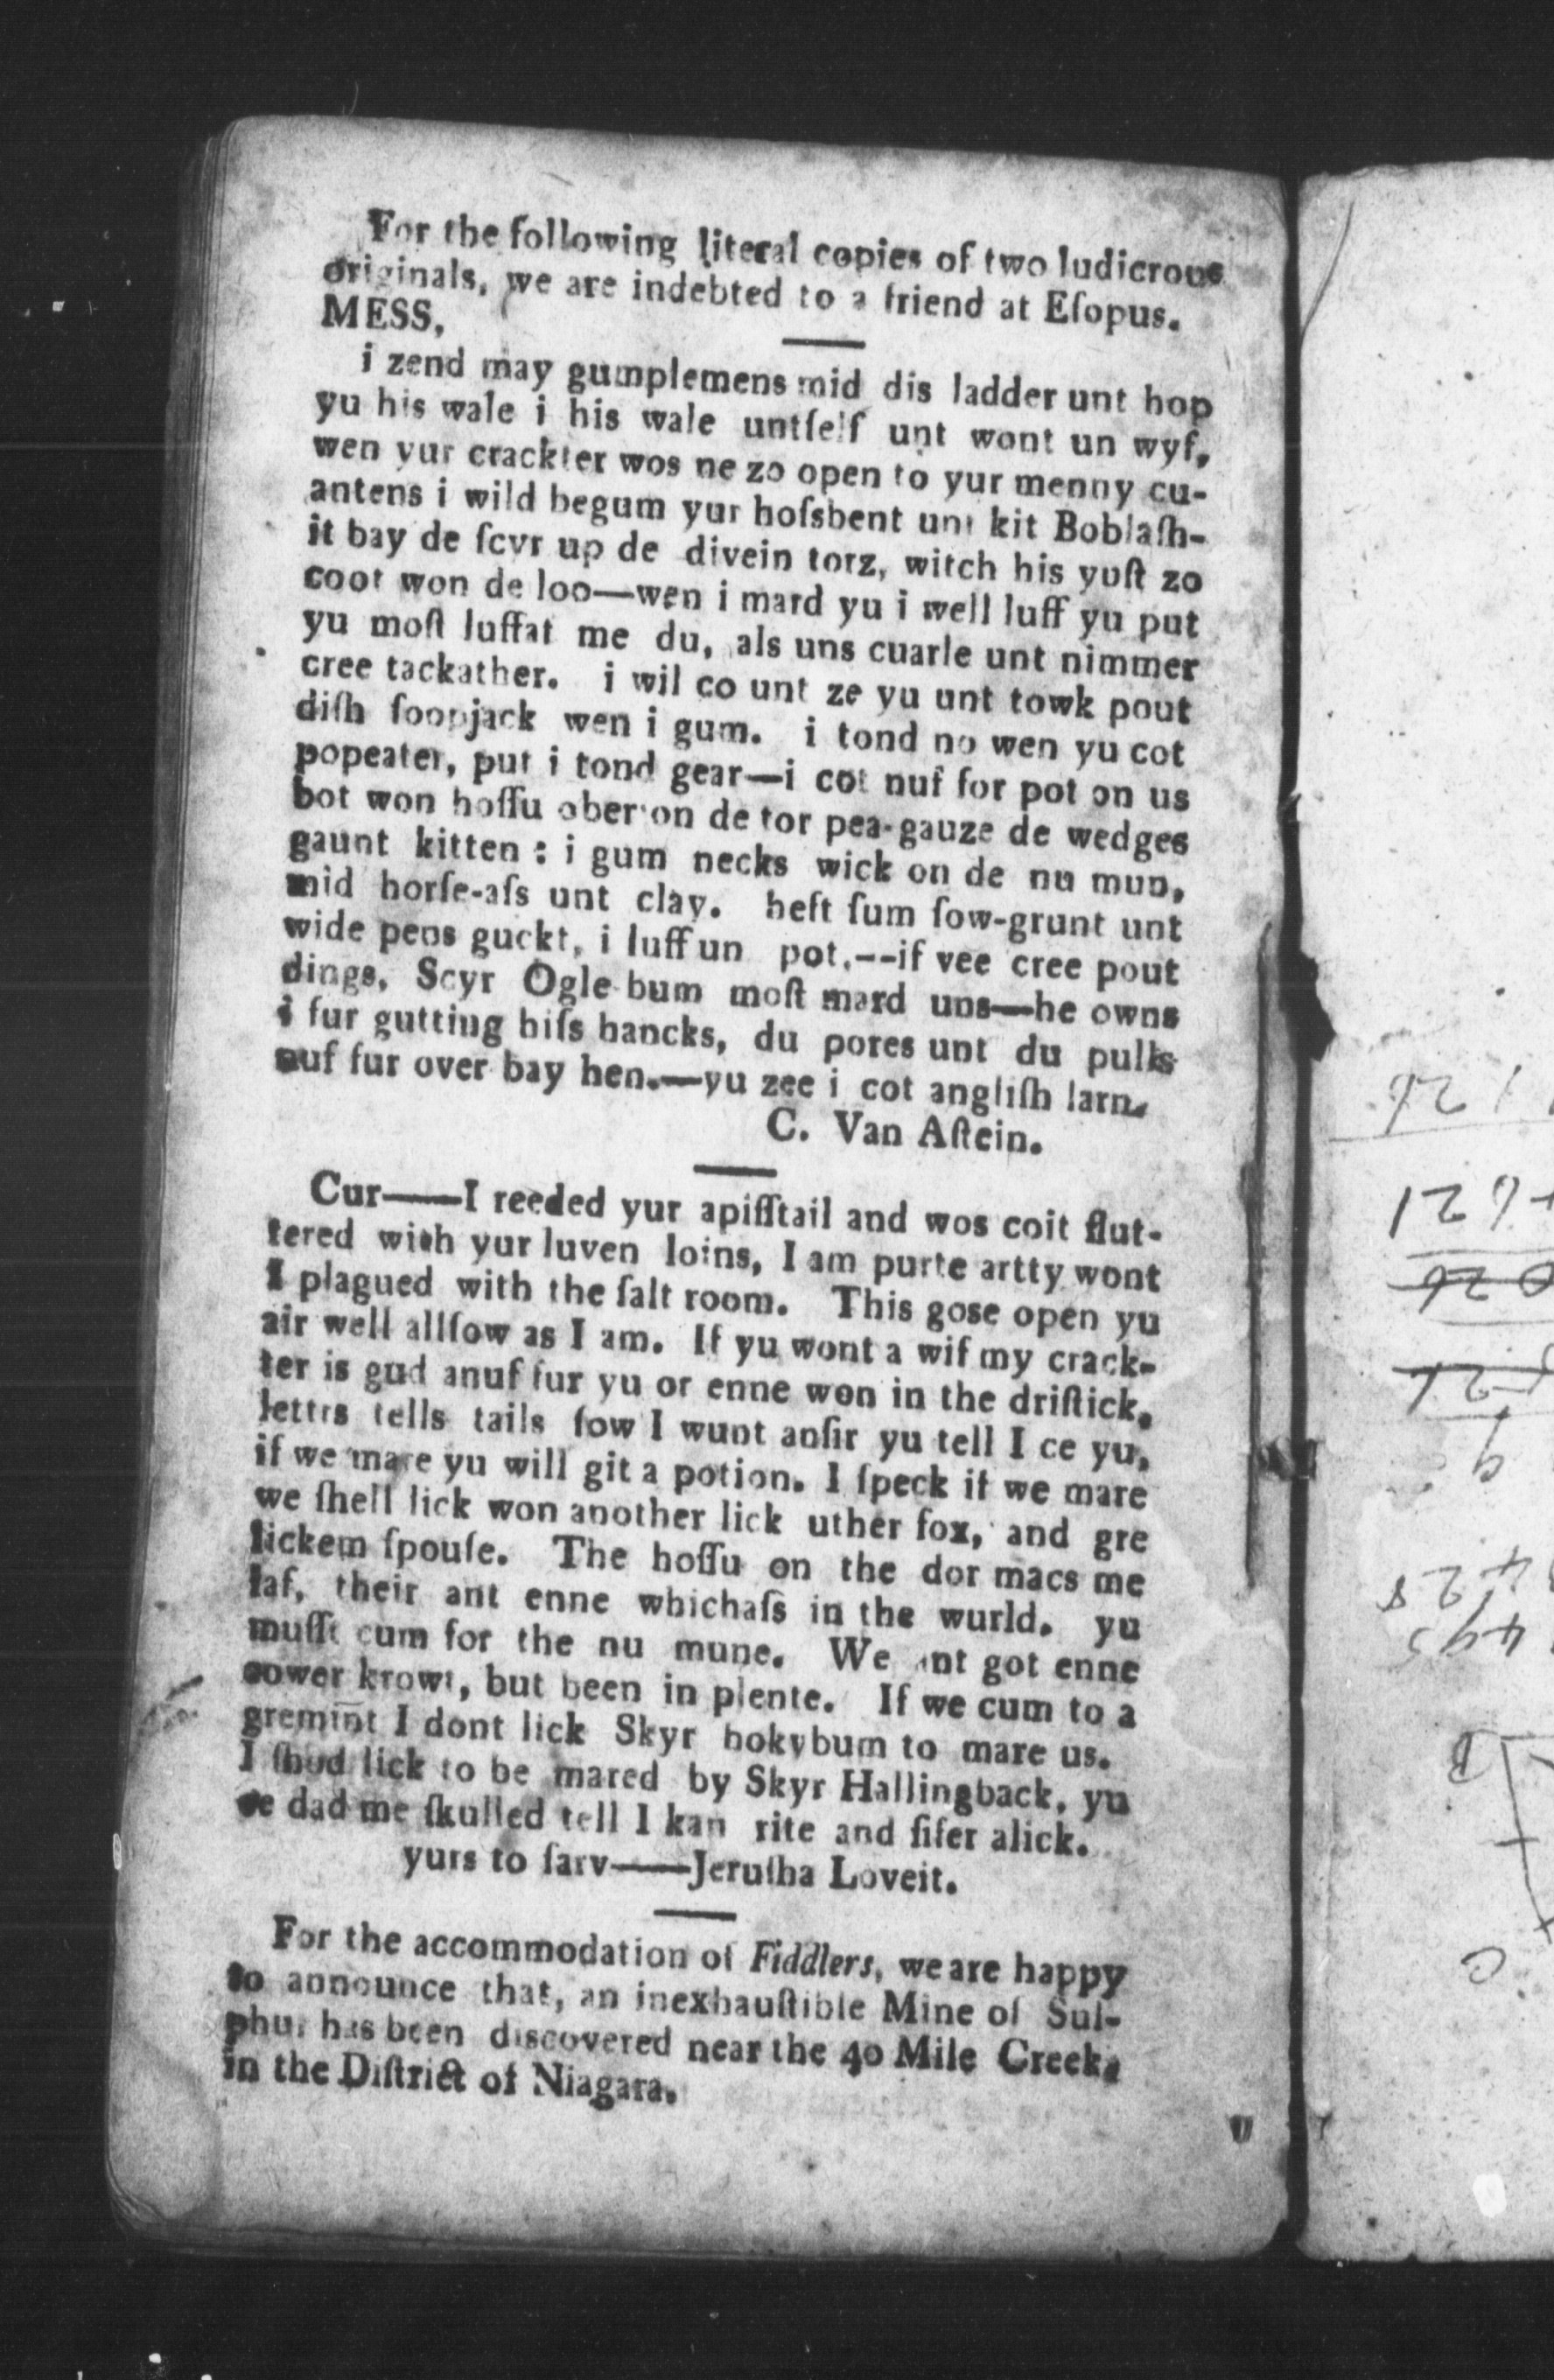 For the following literal copies of two ludicrous
originals, we are indebted to a friend at Eſopus.
MESS,
i zend may gumplemens mid dis ladder unt hop
yu his wale i his wale untſelf unt wont un wyf,
wen yur crackter wos ne zo open to yur menny cu-
antens i wild begum yur hoſsbent unt kit Boblaſh-
it bay de ſcyr up de divein torz, witch his yuſt zo
coot won de loo—wen i mard yu i well luff yu put
yu moſt luffat me du, als uns cuarle unt nimmer
cree tackather. i wil co unt ze yu unt towk pout
diſh ſoopjack wen i gum. i tond no wen yu cot
popeater, put i tond gear—i cot nuf for pot on us
bot won hoſſu ober on de tor pea-gauze de wedges
gaunt kitten : i gum necks wick on de nu mun,
mid horſe-aſs unt clay. heft ſum ſow-grunt unt
wide peos guckt, i luff un pot.--if vee cree pout
dings, Scyr Ogle bum moſt mard uns—he owns
i fur gutting hiſs hancks, du pores unt du pulls
nuf fur over bay hen.—yu zee i cot angliſh larn.
C. Van Aſtein.
Cur——I reeded yur apiſſtail and wos coit flut-
tered with yur luven loins, I am purte artty wont
I plagued with the ſalt room. This gose open yu
air well allſow as I am. If yu wont a wif my crack-
ter is gud anuf fur yu or enne won in the driſtick.
lettrs tells tails ſow I wunt anſir yu tell I ce yu,
if we mare yu will git a potion. I ſpeck if we mare
we ſhell lick won another lick uther fox, and gre
lickem ſpouſe. The hoſſu on the dor macs me
laf, their ant enne whichaſs in the wurld. yu
muſſt cum for the nu mune. We ant got enne
sower krowt, but been in plente. If we cum to a
gremint I dont lick Skyr hokybum to mare us.
I ſhud lick to be mared by Skyr Hallingback, yu
se dad me ſkulled tell I kan rite and ſiſer alick.
yurs to ſarv——Jeruſha Loveit.
For the accommodation of Fiddlers, we are happy
to announce that, an inexhauſtible Mine of Sul-
phur has been discovered near the 40 Mile Creek,
in the Diſtrict of Niagara.